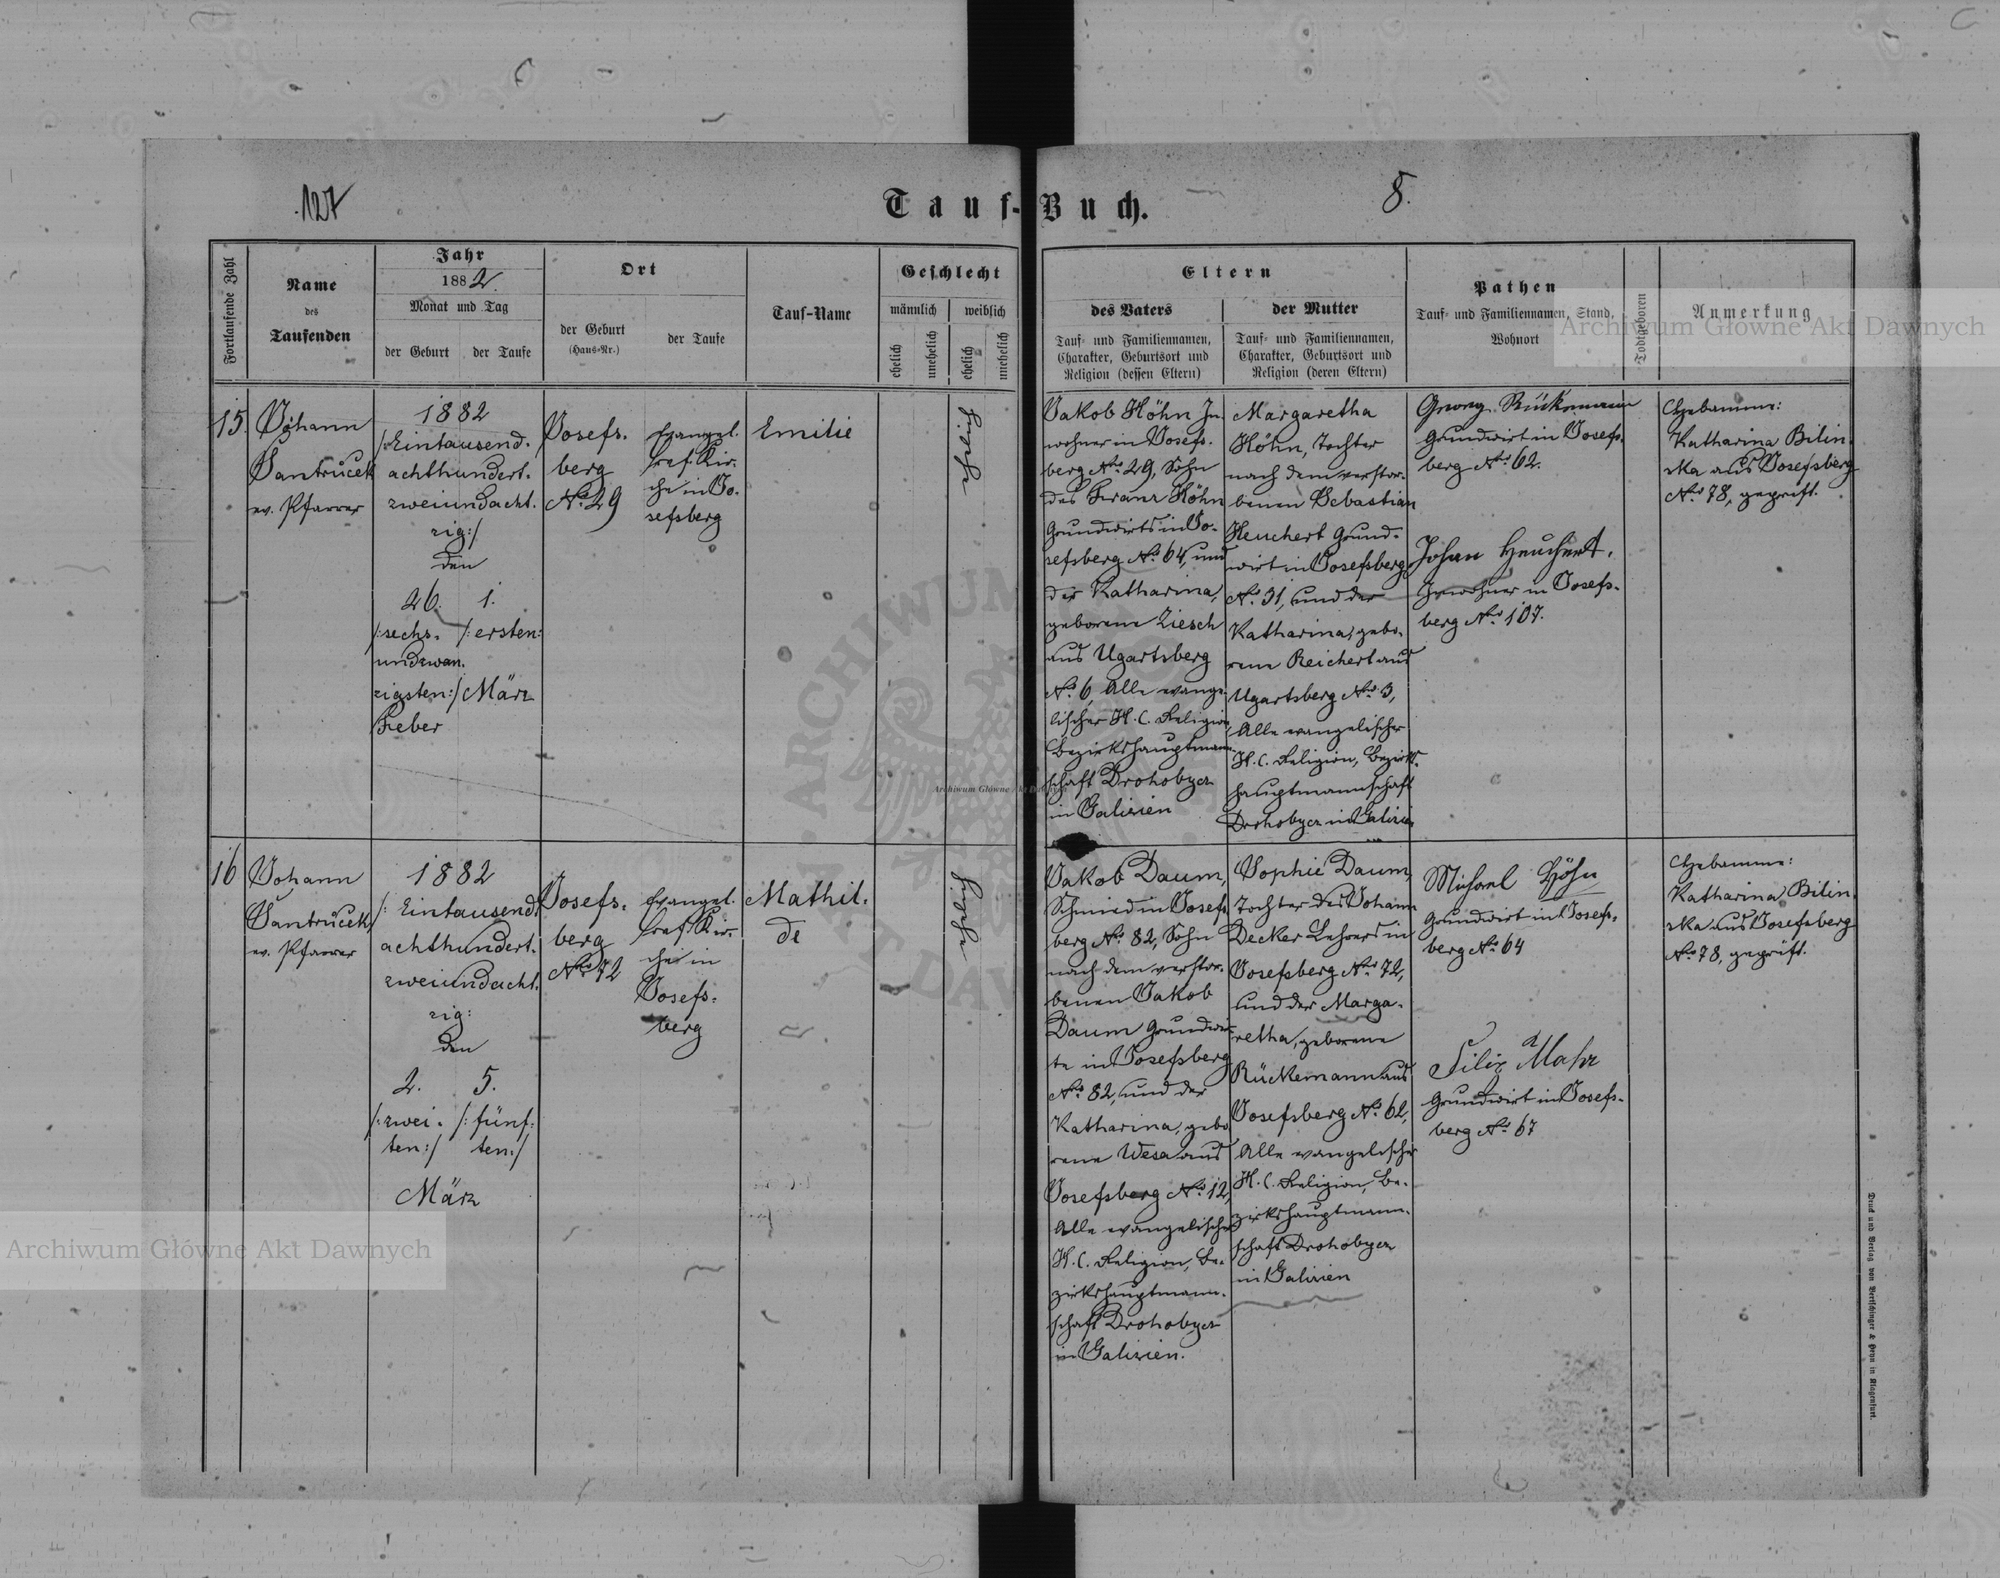 127
8.
Tauf-Buch.
Fortlaufende Zahl
Name
des
Taufenden
Jahr
1882
Monat und Tag
der Geburt
der Taufe
Ort
der Geburt
(Haus-Nr.)
der Taufe
Tauf-Name
Geschlecht
männlich
weiblich
ehelich
unehelich
ehelich
unehelich
Eltern
des Vaters
Tauf- und Familiennamen,
Charakter, Geburtsort und
Religion (dessen Eltern)
der Mutter
Tauf- und Familiennamen,
Charakter, Geburtsort und
Religion (deren Eltern)
Pathen
Tauf- und Familiennamen, Stand,
Wohnort
Todtgeboren
Anmerkung
15.
Johann
Santruček
ev. Pfarrer
1882
/:Eintausend-
achthundert-
zweiundacht-
zig:/
den
26. 1.
/:sechs- /:ersten:
undzwan-
zigsten:/ März
Feber
Josefs-
berg
No 29
Evangel.
/ref./Kir-
che in Jo-
sefsberg
Emilie
eheliche
Jakob Höhn In-
wohner in Josefs-
berg Nro 29, Sohn
des Franz Höhn
Grundwirts in Jo-
sefsberg No 64, und
der Katharina,
geborene Ziesch
aus Ugartsberg
No 6, Alle evange-
lischer H. C. Religion,
Bezirkshauptmann-
schaft Drohobycz
in Galizien
Margaretha
Höhn, Tochter
nach dem verstor-
benen Sebastian
Heuchert Grund-
wirt in Josefsberg
No 31, und der
Katharina, gebo-
rene Reichert aus
Ugartsberg No 3,
Alle evangelischer
H. C. Religion, Bezirks-
hauptmannschaft
Drohobycz in Galizien
Georg Rückemann
Grundwirt in Josefs-
berg Nro 62.
Johan Heuchert,
Inwohner in Josefs-
berg Nro 107.
Hebamme:
Katharina Bilin-
ska aus Josefsberg
No 78, geprüft.
16
Johann
Santruček
ev. Pfarrer
1882
/: Eintausend-
achthundert-
zweiundacht-
zig:
den
2. 5.
/:zwei- /:fünf-
ten:/ ten:/
März
Josefs-
berg
Nro 72
Evangel.
/ref./Kir-
che in
Josefs-
berg
Mathil-
de
eheliche
Jakob Daum,
Schmied in Josefs-
berg No 82, Sohn
nach dem verstor-
benen Jakob
Daum Grundwir-
te in Josefsberg
No 82, und der
Katharina, gebo-
rene Wesa aus
Josefsberg No 12,
Alle evangelischer
H. C. Religion, Be-
zirkshauptmann-
schaft Drohobycz
in Galizien.
Sophie Daum,
Tochter des Johann
Decker Lehrers in
Josefsberg No 72,
und der Marga-
retha, geborene
Rückemann aus
Josefsberg No 62,
Alle evangelischer
H. C. Religion, Be-
zirkshauptmann-
schaft Drohobycz
in Galizien
Michael Höhn
Grundwirt in Josefs-
berg No 64
Filip Mahr
Grundwirt in Josefs-
berg No 67
Hebamme:
Katharina Bilin-
ska aus Josefsberg
No 78, geprüft.
Druck und Verlag von Bertschinger & Heyn in Klagenfurt.
Archiwum Główne Akt Dawnych
Archiwum Główne Akt Dawnych
Archiwum Główne Akt Dawnych